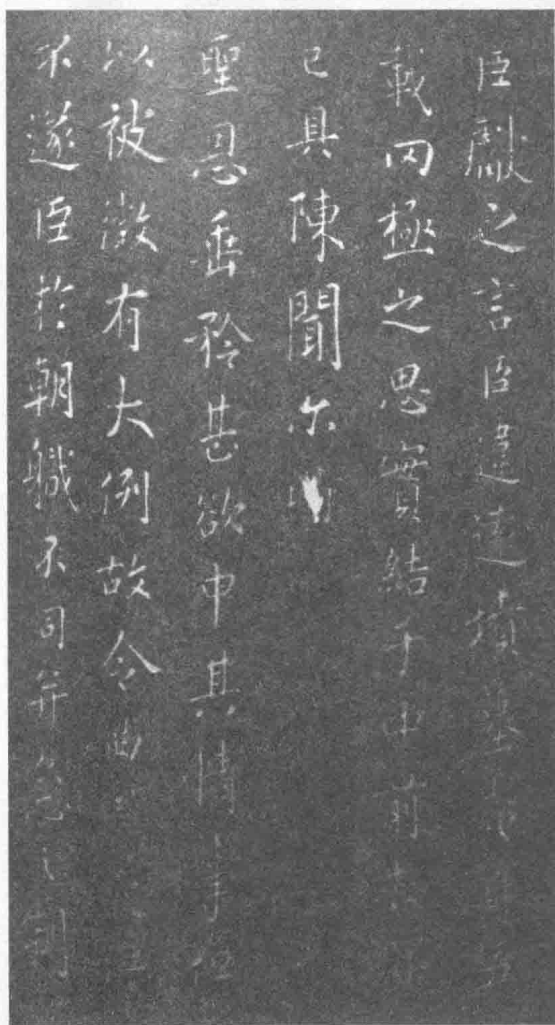 臣獻之言臣違遠墳墓
載罔極之思實結于中前
已具陳聞尓時
聖恩垂矜甚欲申其情事
以被徵有大例故令
不遂臣於朝職不同并急之制